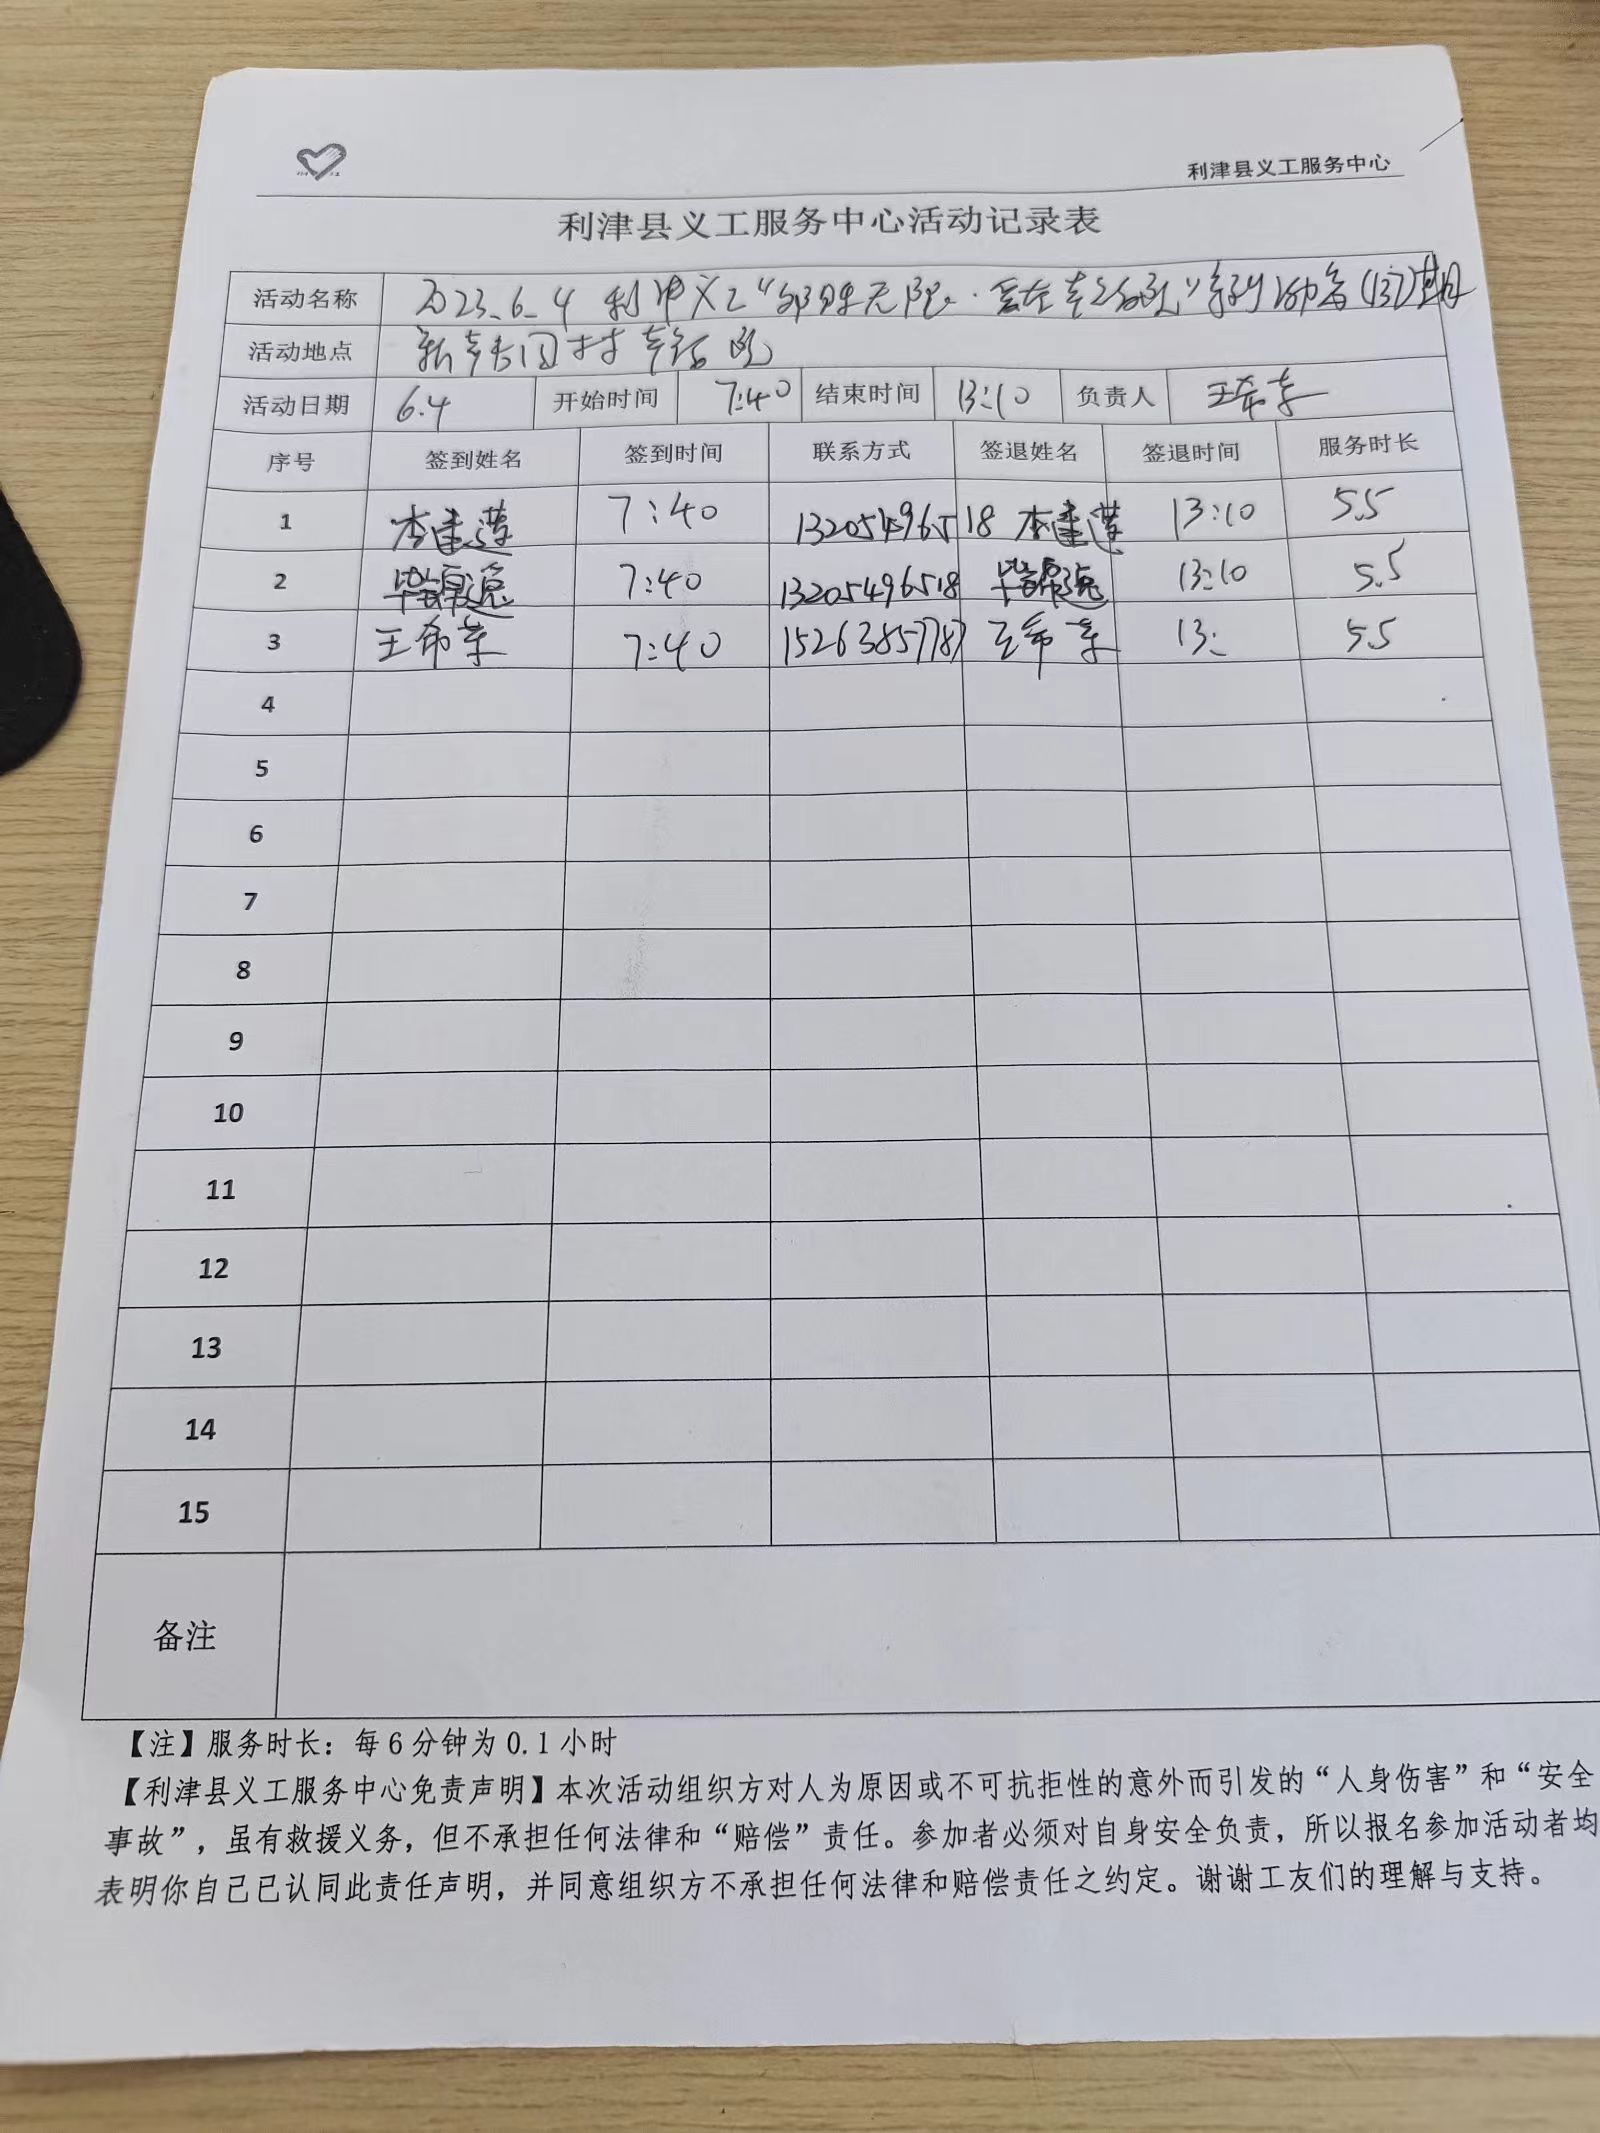 利津县义工服务中心
利津县义工服务中心活动记录表
活动名称 2023.6.4 利津义工“邻里无限·爱在幸福院”系列活动(137)期
活动地点 新韩田村幸福院
活动日期 6.4 开始时间 7:40 结束时间 13:10 负责人 王希
序号 签到姓名 签到时间 联系方式 签退姓名 签退时间 服务时长
1 李建莲 7:40 13205496518 李建莲 13:10 5.5
2 毕锦逸 7:40 13205496518 毕锦逸 13:10 5.5
3 王希 7:40 15263857787 王希 13: 5.5
4
5
6
7
8
9
10
11
12
13
14
15
备注
【注】服务时长：每6分钟为0.1小时
【利津县义工服务中心免责声明】本次活动组织方对人为原因或不可抗拒性的意外而引发的“人身伤害”和“安全
事故”，虽有救援义务，但不承担任何法律和“赔偿”责任。参加者必须对自身安全负责，所以报名参加活动者均
表明你自己已认同此责任声明，并同意组织方不承担任何法律和赔偿责任之约定。谢谢工友们的理解与支持。